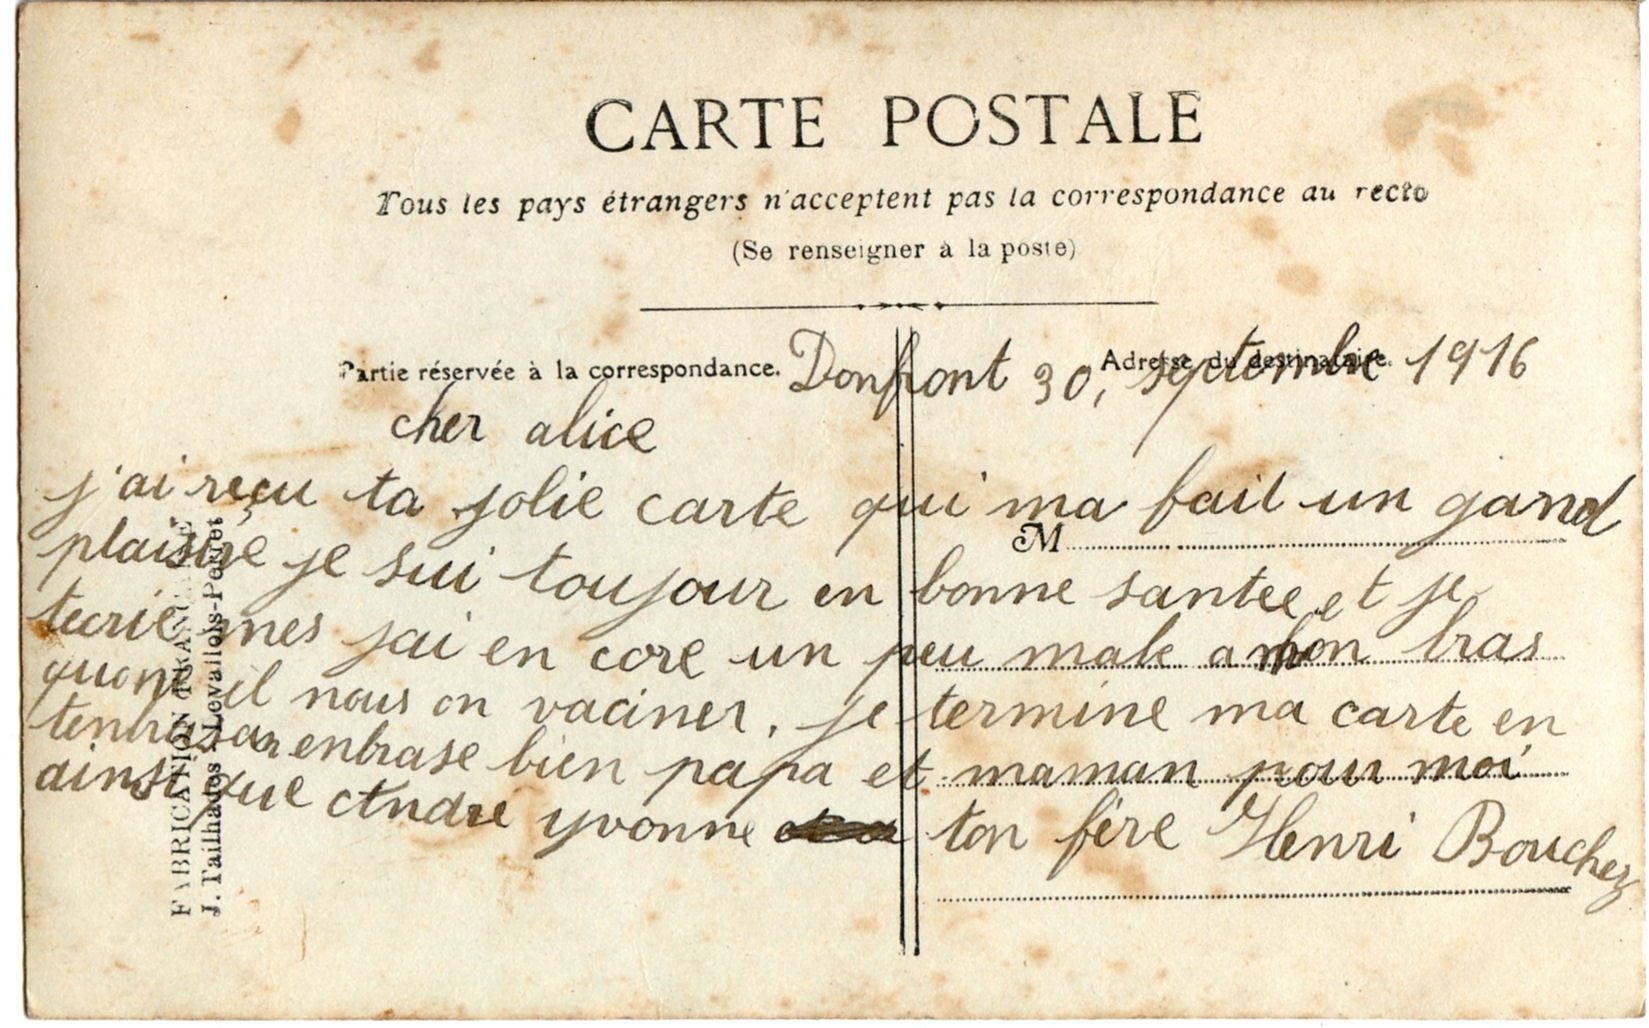 CARTE POSTALE
Tous les pays étrangers n'acceptent pas la correspondance au recto
(Se renseigner à la poste)
Partie réservée à la correspondance.
Adresse du destinataire.
Donfront 30, septembre 1916
cher alice
j'ai reçu ta jolie carte qui ma fait un gand
M
plaisire je sui toujour en bonne santee et je
tecrie mes jai en core un peu male a mon bras
quon il nous on vaciner. je termine ma carte en
enbrase bien papa et maman pour moi
ainsi que Andre yvonne ton fére Henri Bouchez
FABRICATION FRANÇAISE
J. Tailhades Levallois-Perret